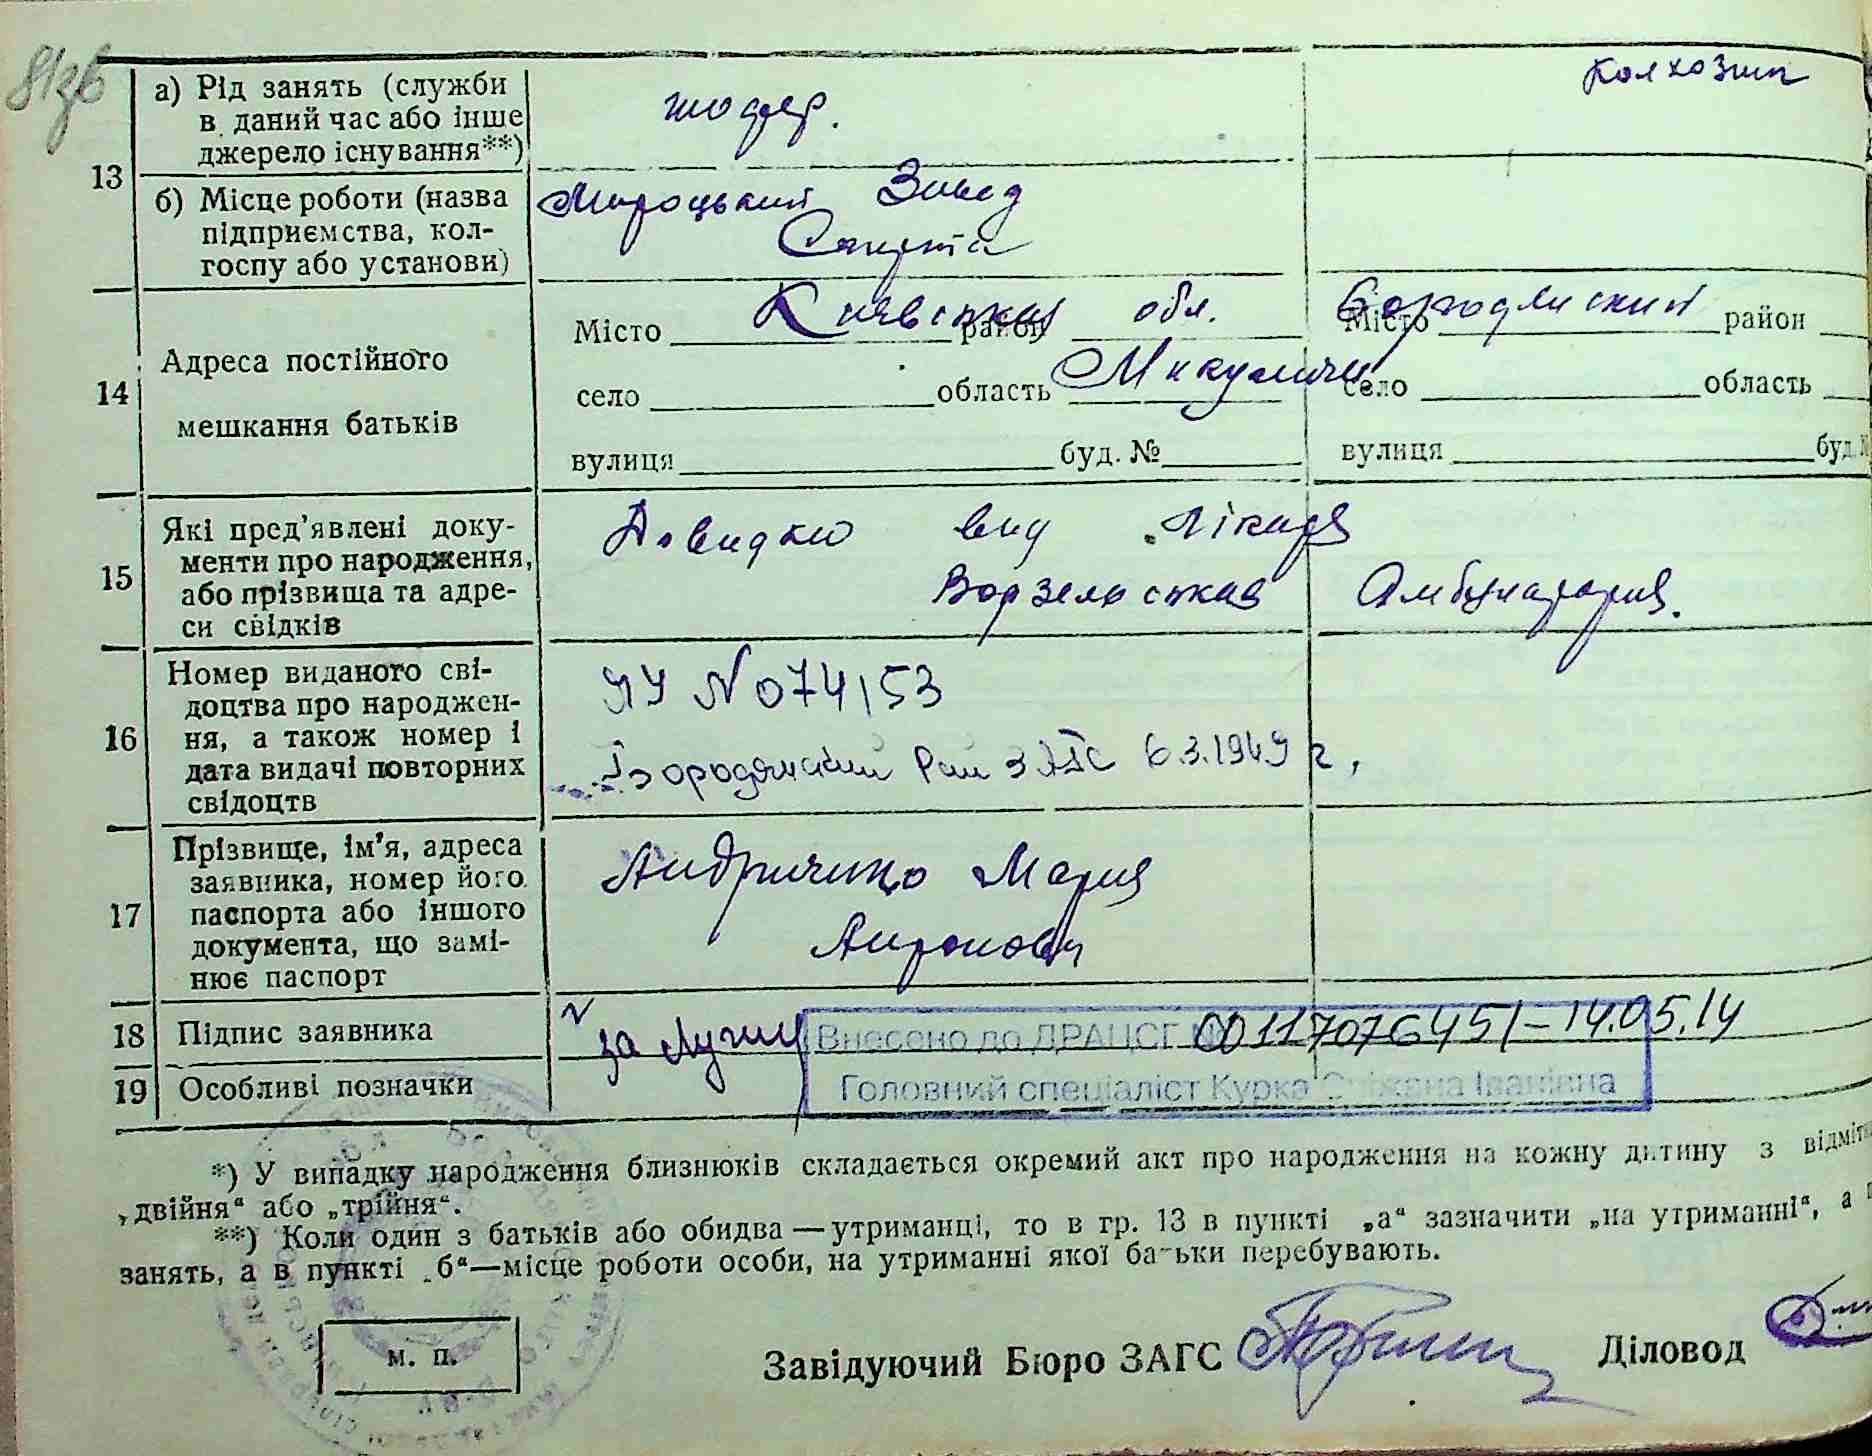 81зб
13
а) Рід занять (служби
в даний час або інше
джерело існування**)
шофер.
Колхозник
б) Місце роботи (назва
підприємства, кол-
госпу або установи)
Мироцький Завод
Спирта
14
Адреса постійного
мешкання батьків
Місто район
Київська обл. Бородянский
село область
Микуличи
вулиця буд. №
Місто район
село область
вулиця буд.
15
Які пред'явлені доку-
менти про народження,
або прізвища та адре-
си свідків
Довидка вид Лікаря
Ворзельская Амбулатория.
16
Номер виданого сві-
доцтва про народжен-
ня, а також номер і
дата видачі повторних
свідоцтв
ЯУ №074153
Бородянский Рай ЗАГС 6.3.1949 г.
17
Прізвище, ім'я, адреса
заявника, номер його
паспорта або іншого
документа, що замі-
нює паспорт
Андрич Мария
18
Підпис заявника
за
Внесено до ДРАЦСГ № 00117076451 – 14.05.14
19
Особливі позначки
Головний спеціаліст Курка Сніжана Іванівна
*) У випадку народження близнюків складається окремий акт про народження на кожну дитину з відміт
„двійня“ або „трійня“.
**) Коли один з батьків або обидва — утриманці, то в гр. 13 в пункті „а“ зазначити „на утриманні“, а
занять, а в пункті „б“—місце роботи особи, на утриманні якої батьки перебувають.
м. п.
Завідуючий Бюро ЗАГС
Діловод